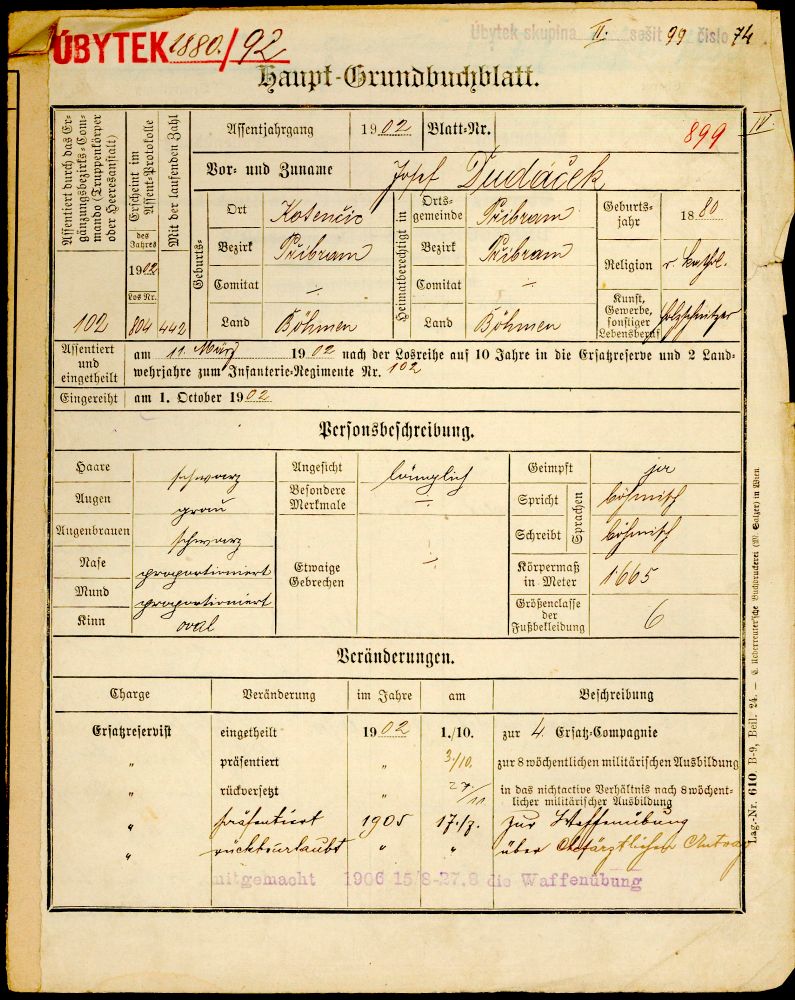 ÚBYTEK 1880./92
Úbytek skupina II. sešit 99 číslo 74
Haupt-Grundbuchblatt.
Assentiert durch das Ergänzungsbezirks-Commando (Truppenkörper oder Heeresanstalt)
102
Erscheint im Assent-Protokolle
des Jahres
1902
Los Nr.
804
Mit der laufenden Zahl
442
Assentjahrgang 1902 Blatt-Nr. 899
IV
Vor- und Zuname Josef Dudáček
Geburts-
Ort
Bezirk Přibram
Comitat ⁒
Land Böhmen
Heimatberechtigt in
Orts-gemeinde Přibram
Bezirk Přibram
Comitat ⁒
Land Böhmen
Geburts-jahr 1880
Religion r. kathol.
Kunst, Gewerbe, sonstiger Lebensberuf Holzschnitzer
Assentiert und eingetheilt
am 11. März 1902 nach der Losreihe auf 10 Jahre in die Ersatzreserve und 2 Land-
wehrjahre zum Infanterie-Regimente Nr. 102
Eingereiht am 1. October 1902
Personsbeschreibung.
Haare schwarz
Augen grau
Augenbrauen schwarz
Nase proportioniert
Mund proportioniert
Kinn oval
Angesicht länglich
Besondere Merkmale ⁒
Etwaige Gebrechen ⁒
Geimpft ja
Sprachen
Spricht böhmisch
Schreibt böhmisch
Körpermaß in Meter 1665
Größenclasse der Fußbekleidung 6
Veränderungen.
Charge Veränderung im Jahre am Beschreibung
Ersatzreservist eingetheilt 1902 1./10. zur 4. Ersatz-Compagnie
" präsentiert " 3/10. zur 8 wöchentlichen militärischen Ausbildung
" rückversetzt " 27/11 in das nichtactive Verhältnis nach 8 wöchent-
licher militärischer Ausbildung
" präsentiert 1905 17./7. zur Waffenübung
" rückbeurlaubt " " über chefärztlichen Antrag
mitgemacht 1906 15/8-27.8 die Waffenübung
Lag.-Nr. 610. B-9, Beil. 24. — C. Ueberreuter'sche Buchdruckerei (M. Salzer) in Wien